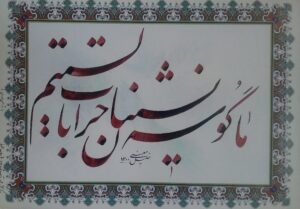 ما گوشه نشینان خرابات الستیم